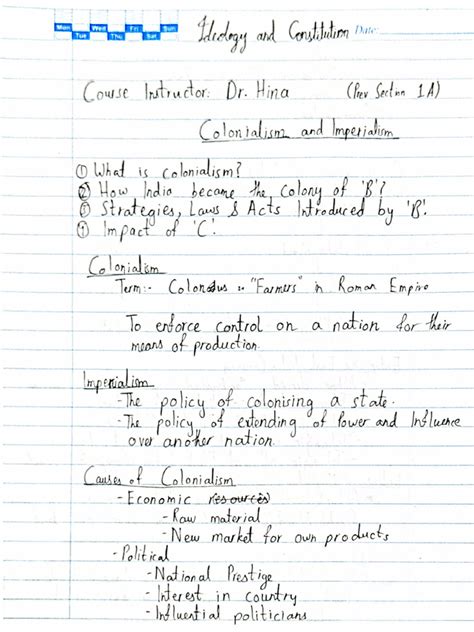 Mon Wed Fri Sun
Tue Thu Sat
Ideology and Constitution Date:
Course Instructor: Dr. Hina (Prev Section 1A)
Colonialism and Imperialism
① What is colonialism?
② How India became the colony of 'B'?
③ Strategies, Laws & Acts Introduced by 'B'.
④ Impact of 'C'.
Colonialism
Term:- "Farmers" in Roman Empire
To enforce control on a nation for their
means of production.
Imperialism
-The policy of colonising a state.
-The policy of extending of Power and Influence
over another nation.
Causes of Colonialism
-Economic resources
-Raw material
-New market for own products
-Political
-National Prestige
-Interest in country
-Influential politicians